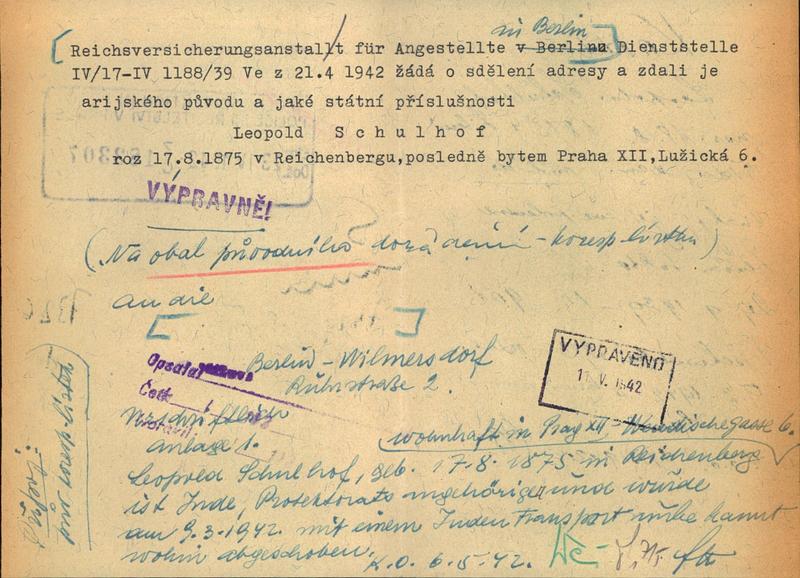 in Berlin
[Reichsversicherungsanstallt für Angestellte v Berlinu Dienststelle
IV/17-IV 1188/39 Ve z 21.4 1942 žádá o sdělení adresy a zdali je
arijského původu a jaké státní příslušnosti
Leopold S c h u l h o f
roz 17.8.1875 v Reichenbergu,posledně bytem Praha XII,Lužická 6.
VÝPRAVNĚ!
(Na obal původního dožádání - koresp lístku)
an die
[ ]
Berlin-Wilmersdorf
Ruhrstrasse 2.
Opsal
Četl
VYPRAVENO
11. V. 1942
Urschriftlich
Anlage 1.
wohnhaft in Prag XII, Wendischegasse 6.
Leopold Schulhof, geb. 17.8.1875 in Reichenberg
ist Jude, Protektoratsangehöriger und wurde
am 9.3.1942. mit einem Juden Transport unbekannt
wohin abgeschoben.
K.O. 6.5.42.